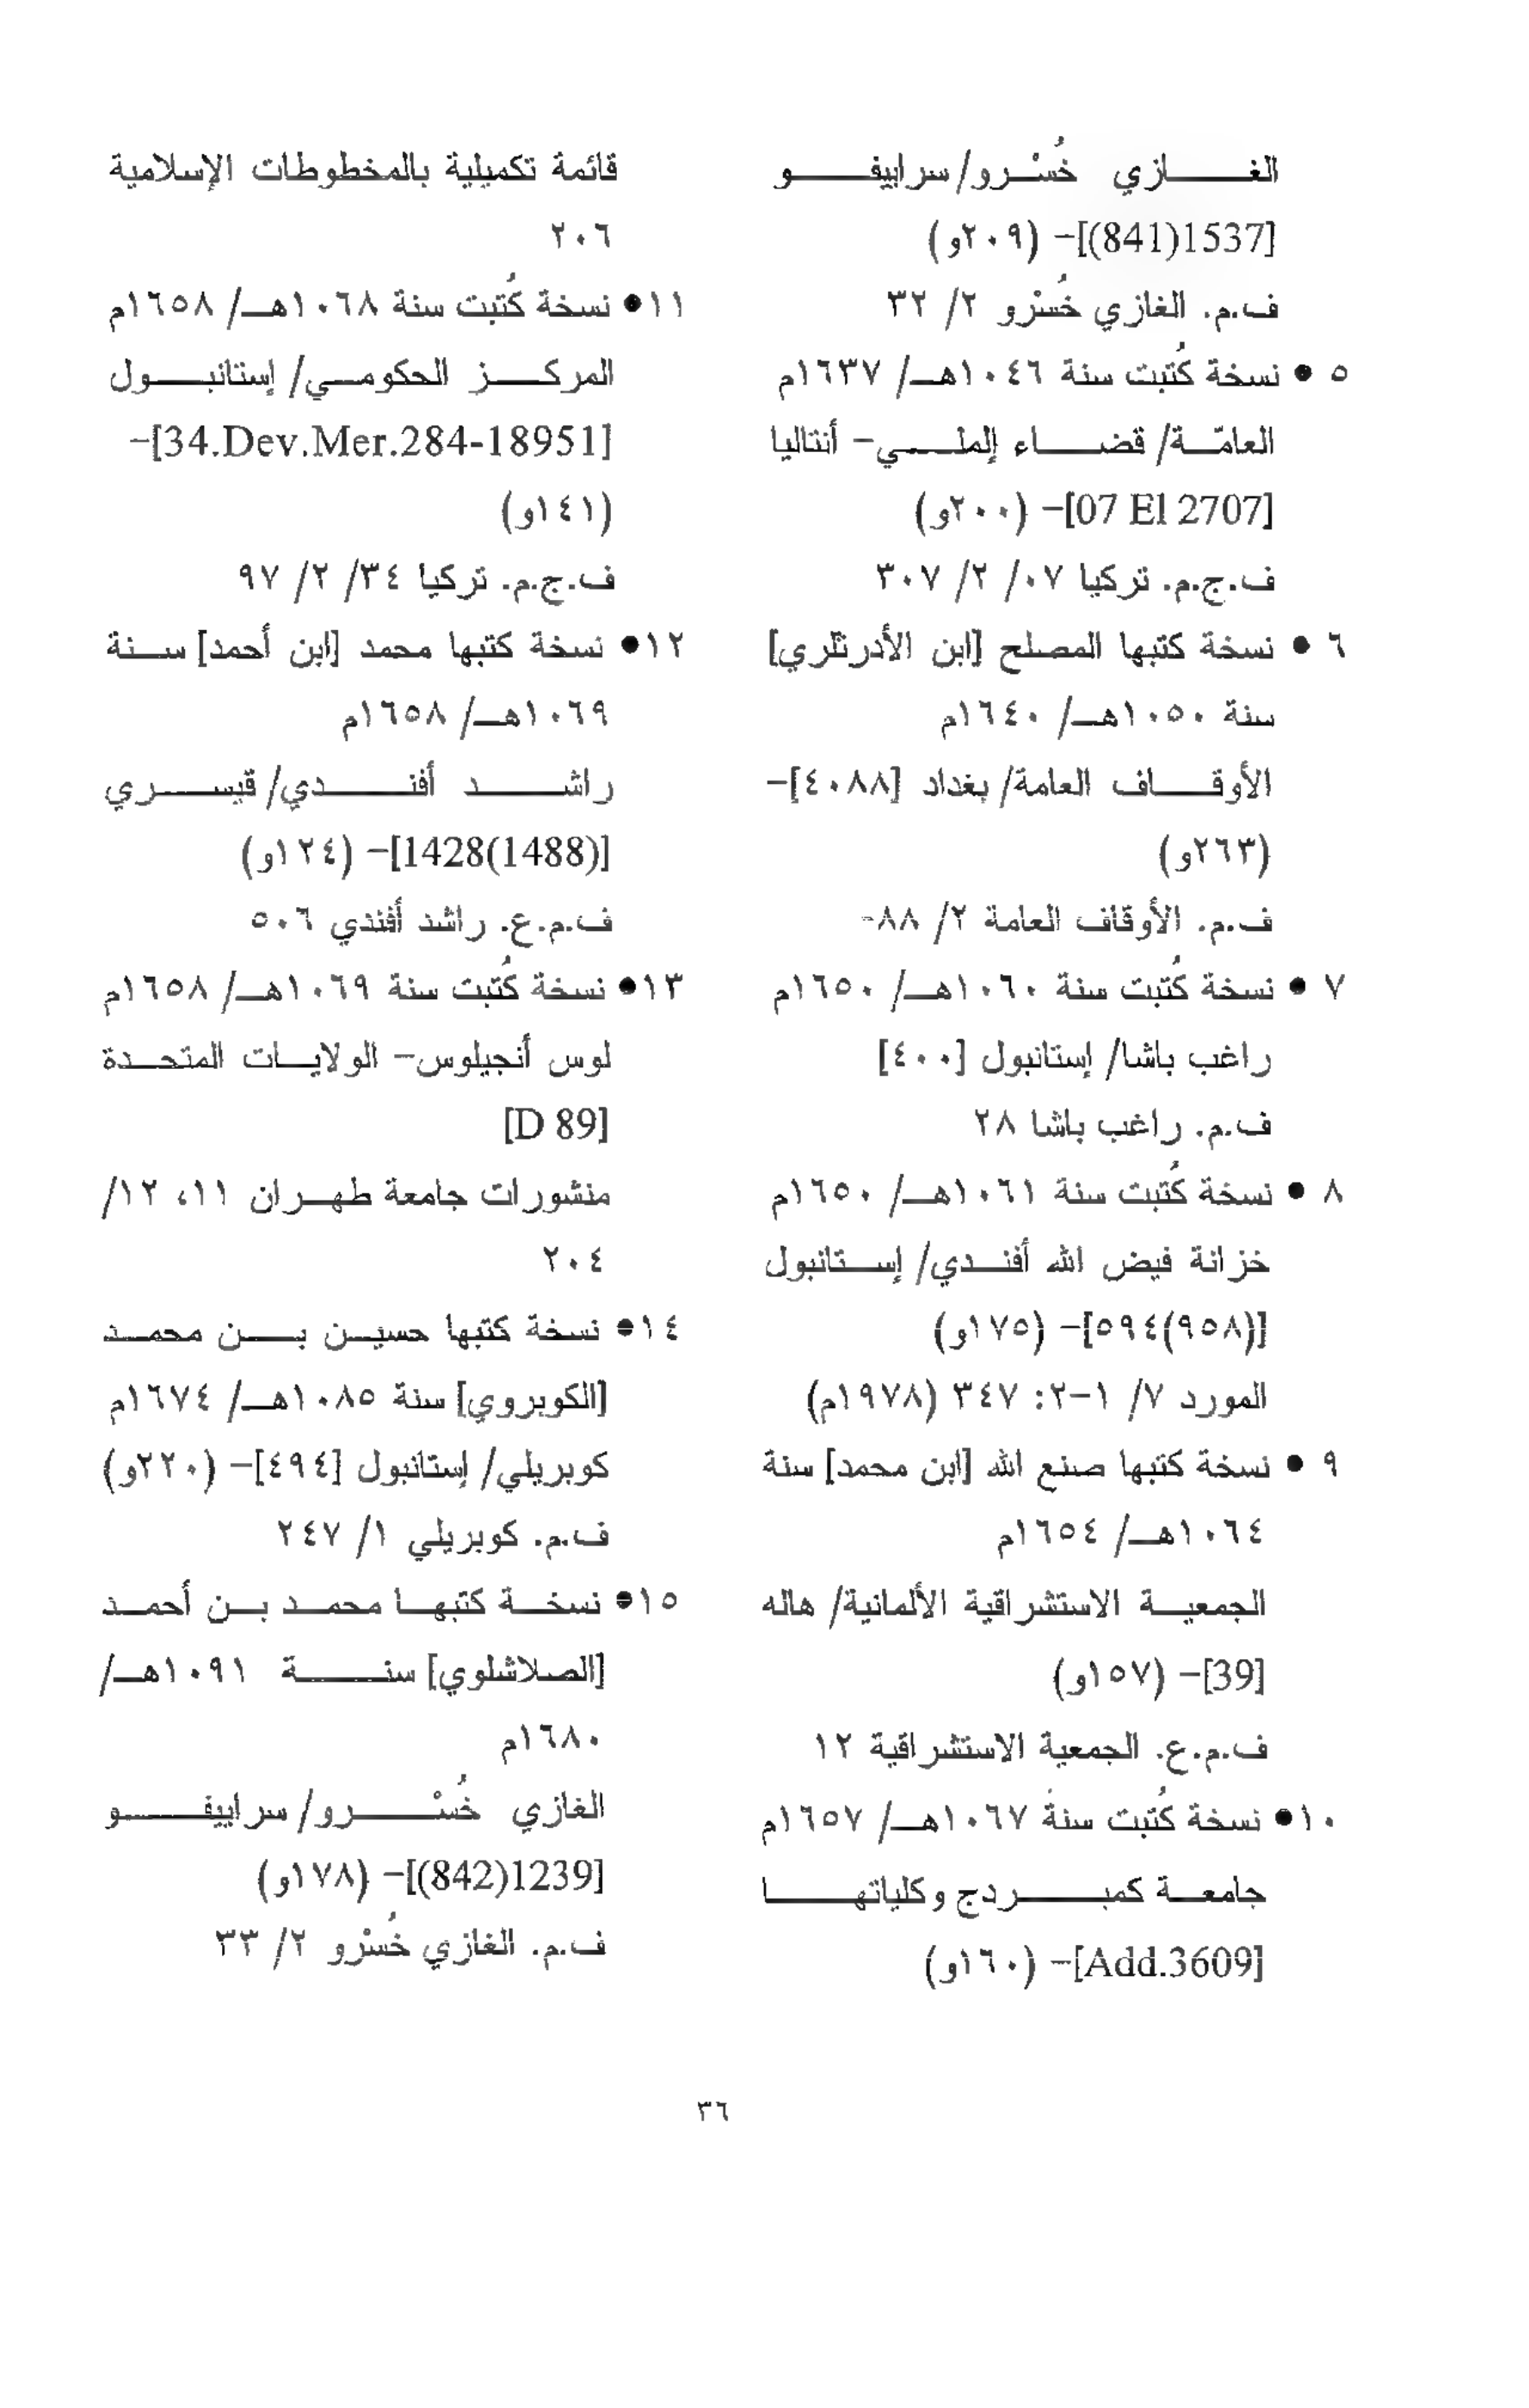 الغازي خُسْرو/ سراييفو
[1537(841)]- (٢٠٩و)
ف.م. الغازي خُسْرو ٢/ ٣٢
٥ • نسخة كُتبت سنة ١٠٤٦هـ/ ١٦٣٧م
العامّة/ قضاء إلملي- أنتاليا
[07 El 2707]- (٢٠٠و)
ف.ج.م. تركيا ٠٧/ ٢/ ٣٠٧
٦ • نسخة كتبها المصلح [ابن الأدرثلري]
سنة ١٠٥٠هـ/ ١٦٤٠م
الأوقاف العامة/ بغداد [٤٠٨٨]-
(٢٦٣و)
ف.م. الأوقاف العامة ٢/ ٨٨-
٧ • نسخة كُتبت سنة ١٠٦٠هـ/ ١٦٥٠م
راغب باشا/ إستانبول [٤٠٠]
ف.م. راغب باشا ٢٨
٨ • نسخة كُتبت سنة ١٠٦١هـ/ ١٦٥٠م
خزانة فيض الله أفندي/ إستانبول
[٥٩٤(٩٥٨)]- (١٧٥و)
المورد ٧/ ١-٢: ٣٤٧ (١٩٧٨م)
٩ • نسخة كتبها صنع الله [ابن محمد] سنة
١٠٦٤هـ/ ١٦٥٤م
الجمعية الاستشراقية الألمانية/ هاله
[39]- (١٥٧و)
ف.م.ع. الجمعية الاستشراقية ١٢
١٠• نسخة كُتبت سنة ١٠٦٧هـ/ ١٦٥٧م
جامعة كمبردج وكلياتها
[Add.3609]- (١٦٠و)
قائمة تكميلية بالمخطوطات الإسلامية
٢٠٦
١١• نسخة كُتبت سنة ١٠٦٨هـ/ ١٦٥٨م
المركز الحكومي/ إستانبول
[34.Dev.Mer.284-18951]-
(١٤١و)
ف.ج.م. تركيا ٣٤/ ٢/ ٩٧
١٢• نسخة كتبها محمد [ابن أحمد] سنة
١٠٦٩هـ/ ١٦٥٨م
راشد أفندي/ قيسري
[1428(1488)]- (١٢٤و)
ف.م.ع. راشد أفندي ٥٠٦
١٣• نسخة كُتبت سنة ١٠٦٩هـ/ ١٦٥٨م
لوس أنجيلوس- الولايات المتحدة
[D 89]
منشورات جامعة طهران ١١، ١٢/
٢٠٤
١٤• نسخة كتبها حسين بن محمد
[الكوبروي] سنة ١٠٨٥هـ/ ١٦٧٤م
كوبريلي/ إستانبول [٤٩٤]- (٢٢٠و)
ف.م. كوبريلي ١/ ٢٤٧
١٥• نسخة كتبها محمد بن أحمد
[الصلاشلوي] سنة ١٠٩١هـ/
١٦٨٠م
الغازي خُسْرو/ سراييفو
[1239(842)]- (١٧٨و)
ف.م. الغازي خُسْرو ٢/ ٣٣
٣٦